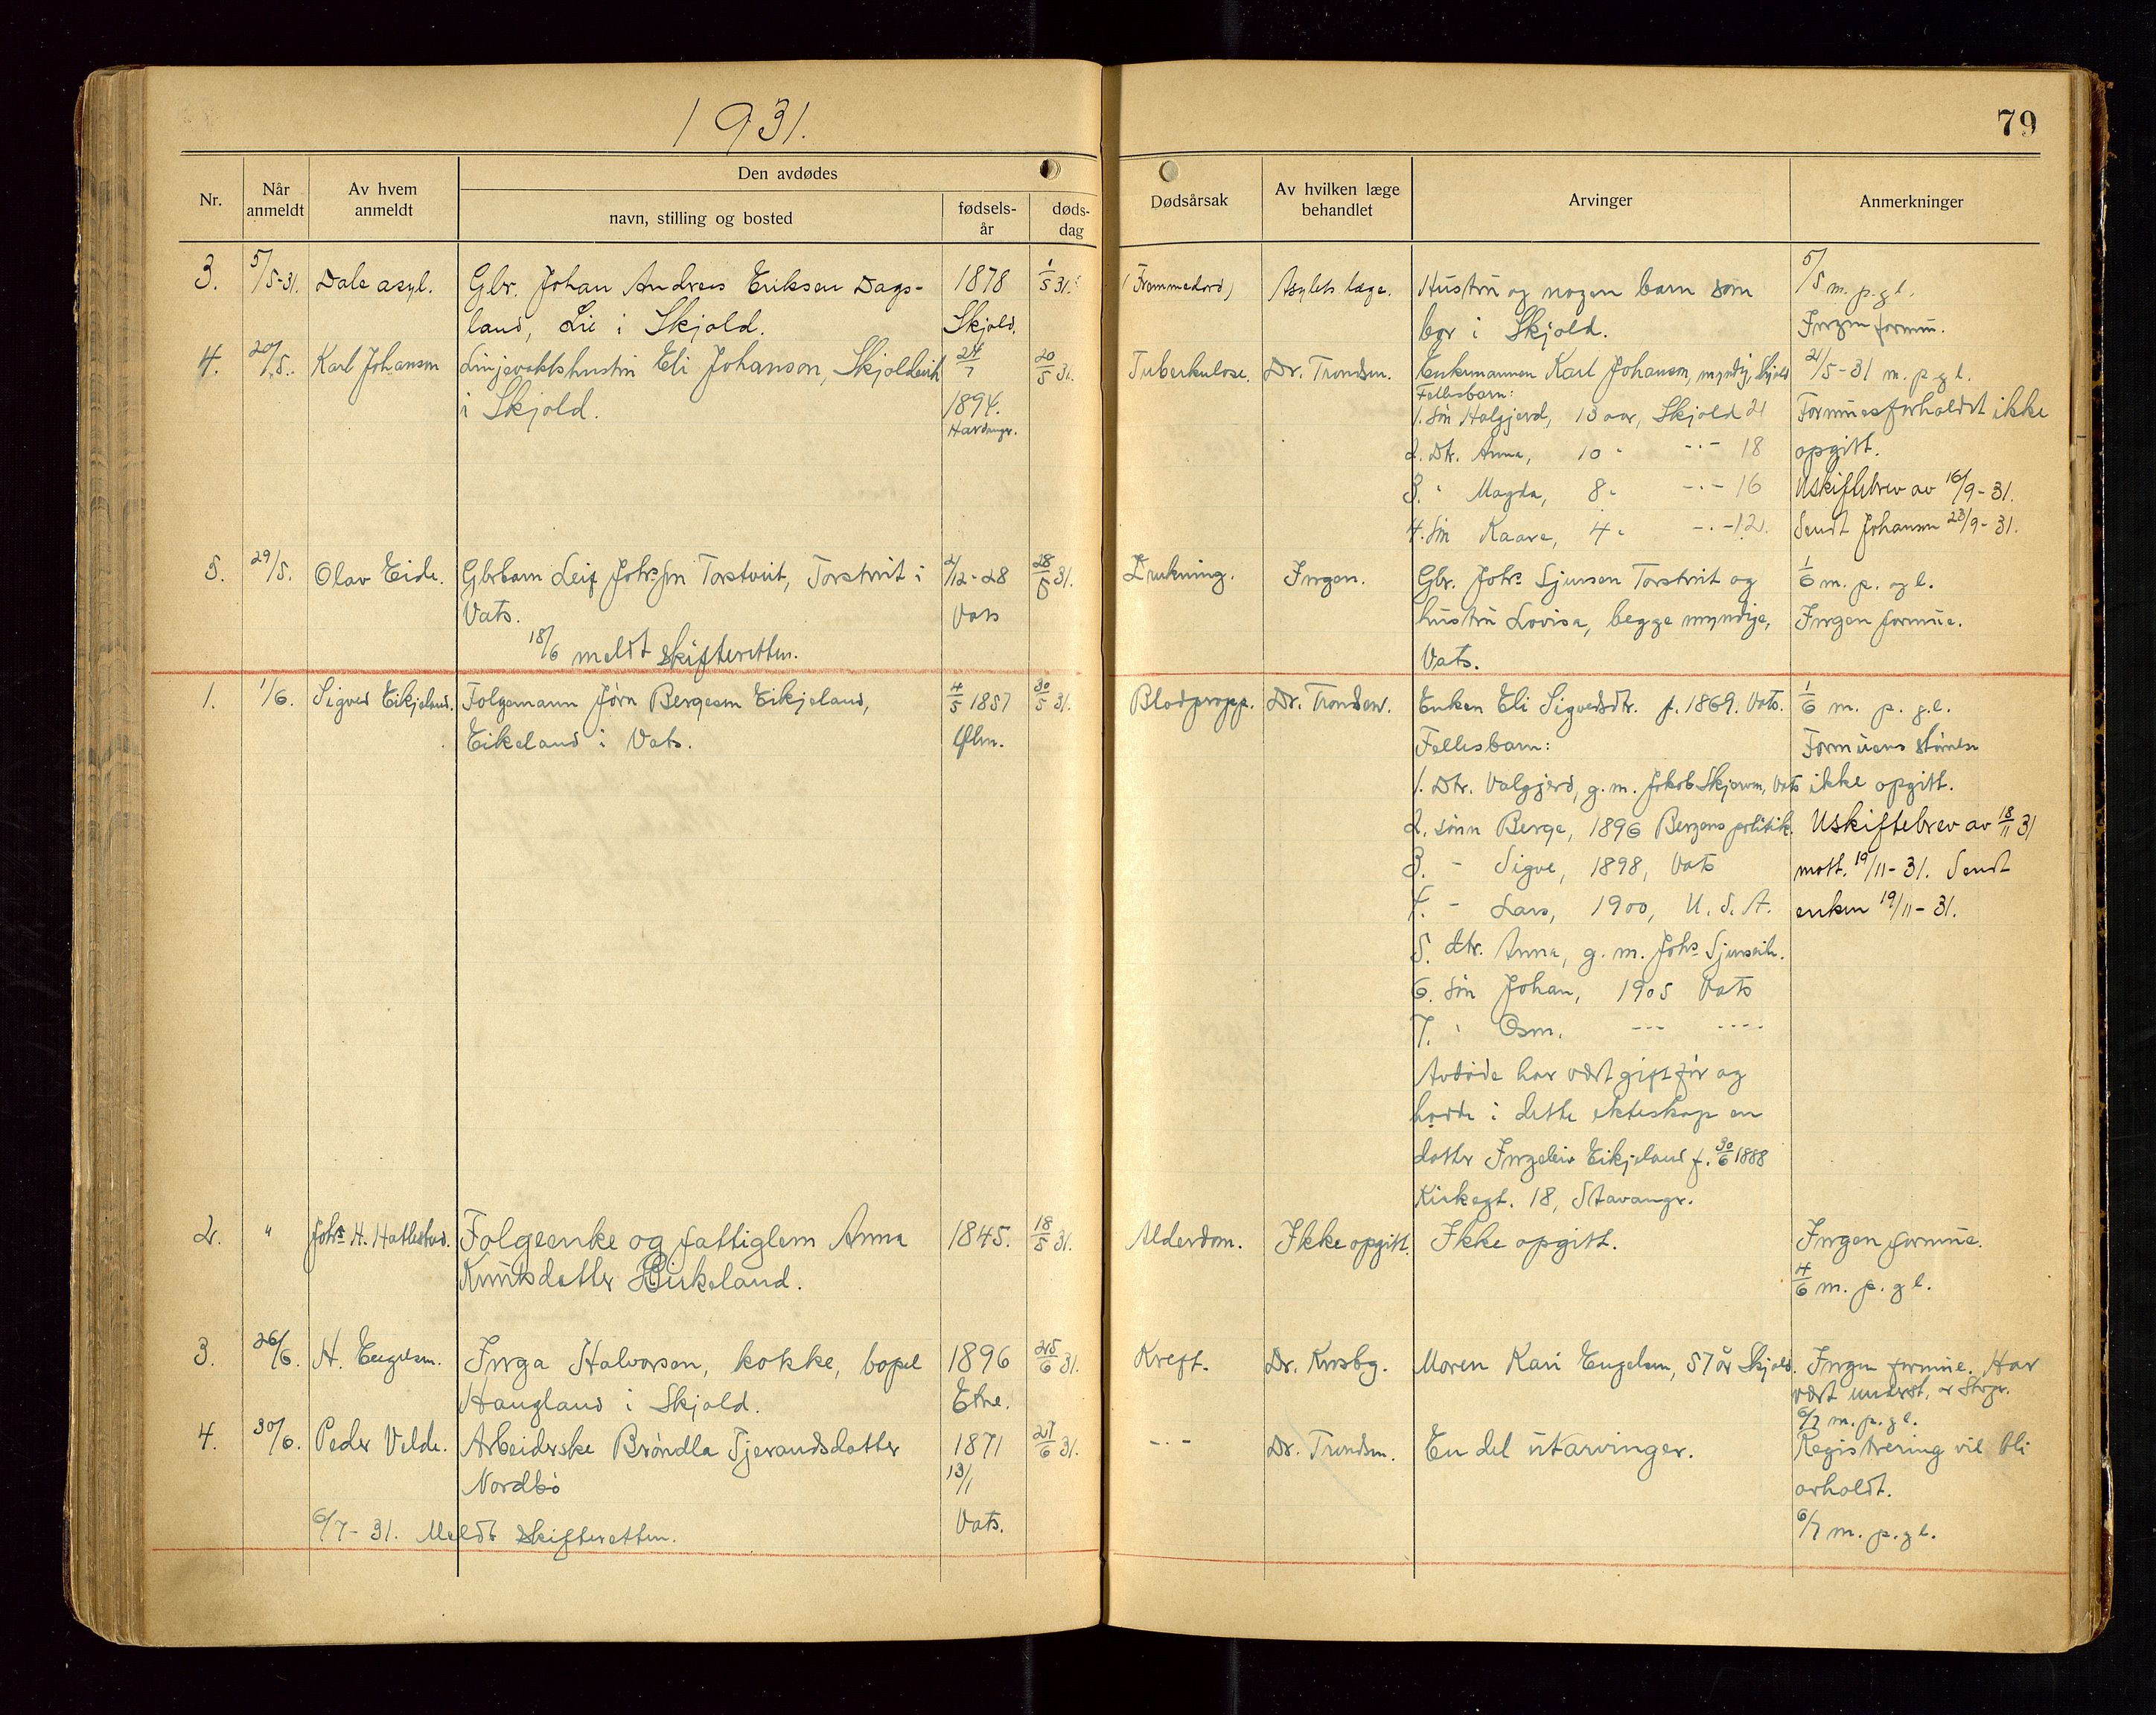 1931.
79
Nr.
Når anmeldt
Av hvem anmeldt
Den avdødes
navn, stilling og bosted
fødsels-år
døds-dag
Dødsårsak
Av hvilken læge behandlet
Arvinger
Anmerkninger
3. 5/5-31. Dale asyl. Gbr. Johan Andreas Eriksen Dags- 1878 1/5 31. (Fremmedord) Asylets læge. Hustru og nogen barn som 5/5 m. p. g l.
land, Lie i Skjold. Skjold. bor i Skjold. Ingen formu.
4. 20/5. Karl Johansen Linjevakthustru Eli Johanson, Skjoldevik 24/7 20/5 31. Tuberkulose. Dr. Trondsen. Enkemannen Karl Johanson, myndig, Skjold 21/5-31 m. p. g l.
i Skjold. 1894. Fellesbarn:
Hardanger. 1. Søn Halgjerd, 13 aar, Skjold 21 Formuesforholdet ikke
2. Dtr. Anna, 10 " -"- 18 opgitt.
3. " Magda, 8 " -"- 16 Uskiftebrev av 16/9-31.
4. Søn Kaare, 4 " -"- 12. Sendt Johansen 23/9-31.
5. 29/5. Olav Eide. Gbrbarn Leif Johs Søn Torstveit, Torstveit i 2/12-28 28/5 31. Drukning. Ingen. Gbr. Johs Sjursen Torstveit og 1/6 m. p. og l.
Vats. Vats hustru Lovisa, begge myndige, Ingen formue.
18/6 meldt skifteretten. Vats.
1. 1/6. Sigved Eikjeland. Folgemann Jørn Bergesen Eikjeland, 4/5 1857 30/5 31. Blodpropp. Dr. Trondsen. Enken Eli Sigvedsdtr. f. 1869. Vats. 1/6 m. p. g. l.
Eikeland i Vats. Ølen. Fellesbarn: Formuens størrelse
1. Dtr. Valgjerd, g. m. Jakob Skjeveren, Vats ikke opgitt.
2. sønn Berge, 1896 Bergens politik. Uskiftebrev av 18/11 31
3. - Sigve, 1898, Vats mott. 19/11-31. Sendt
4. - Lars, 1900, U. S. A. enken 19/11-31.
5. dtr. Anna, g. m. Johs
6. søn Johan, 1905 Vats
7. " Osm. --- ----
Avdøde har vært gift før og
hadde i dette ekteskap en
datter Ingeleiv Eikjeland f. 30/6 1888
Kirkegt. 18, Stavanger.
2. " Johs H. Hatlestad. Folgeenke og fattiglem Anna 1845. 18/5 31. Alderdom. Ikke opgitt. Ikke opgitt. Ingen formue.
Knutsdatter Birkeland. 4/6 m. p. g l.
3. 26/6. H. Engelsen. Inga Halvorsen, kokke, bopel 1896 25/6 31. Kreft. Dr. Knsbg. Moren Kari Engelsen, 57 år Skjold. Ingen formue. Har
Haugland i Skjold. Etne. vært underst. av
6/7 m. p. g l.
4. 30/6. Peder Velde. Arbeiderske Brøndla Tjerandsdatter 1871 27/6 31. -"- Dr. Trondsen. En del utarvinger. Registrering vil bli
Nordbø 13/1 avholdt.
6/7-31. Meldt skifteretten. Vats. 6/7 m. p. g l.